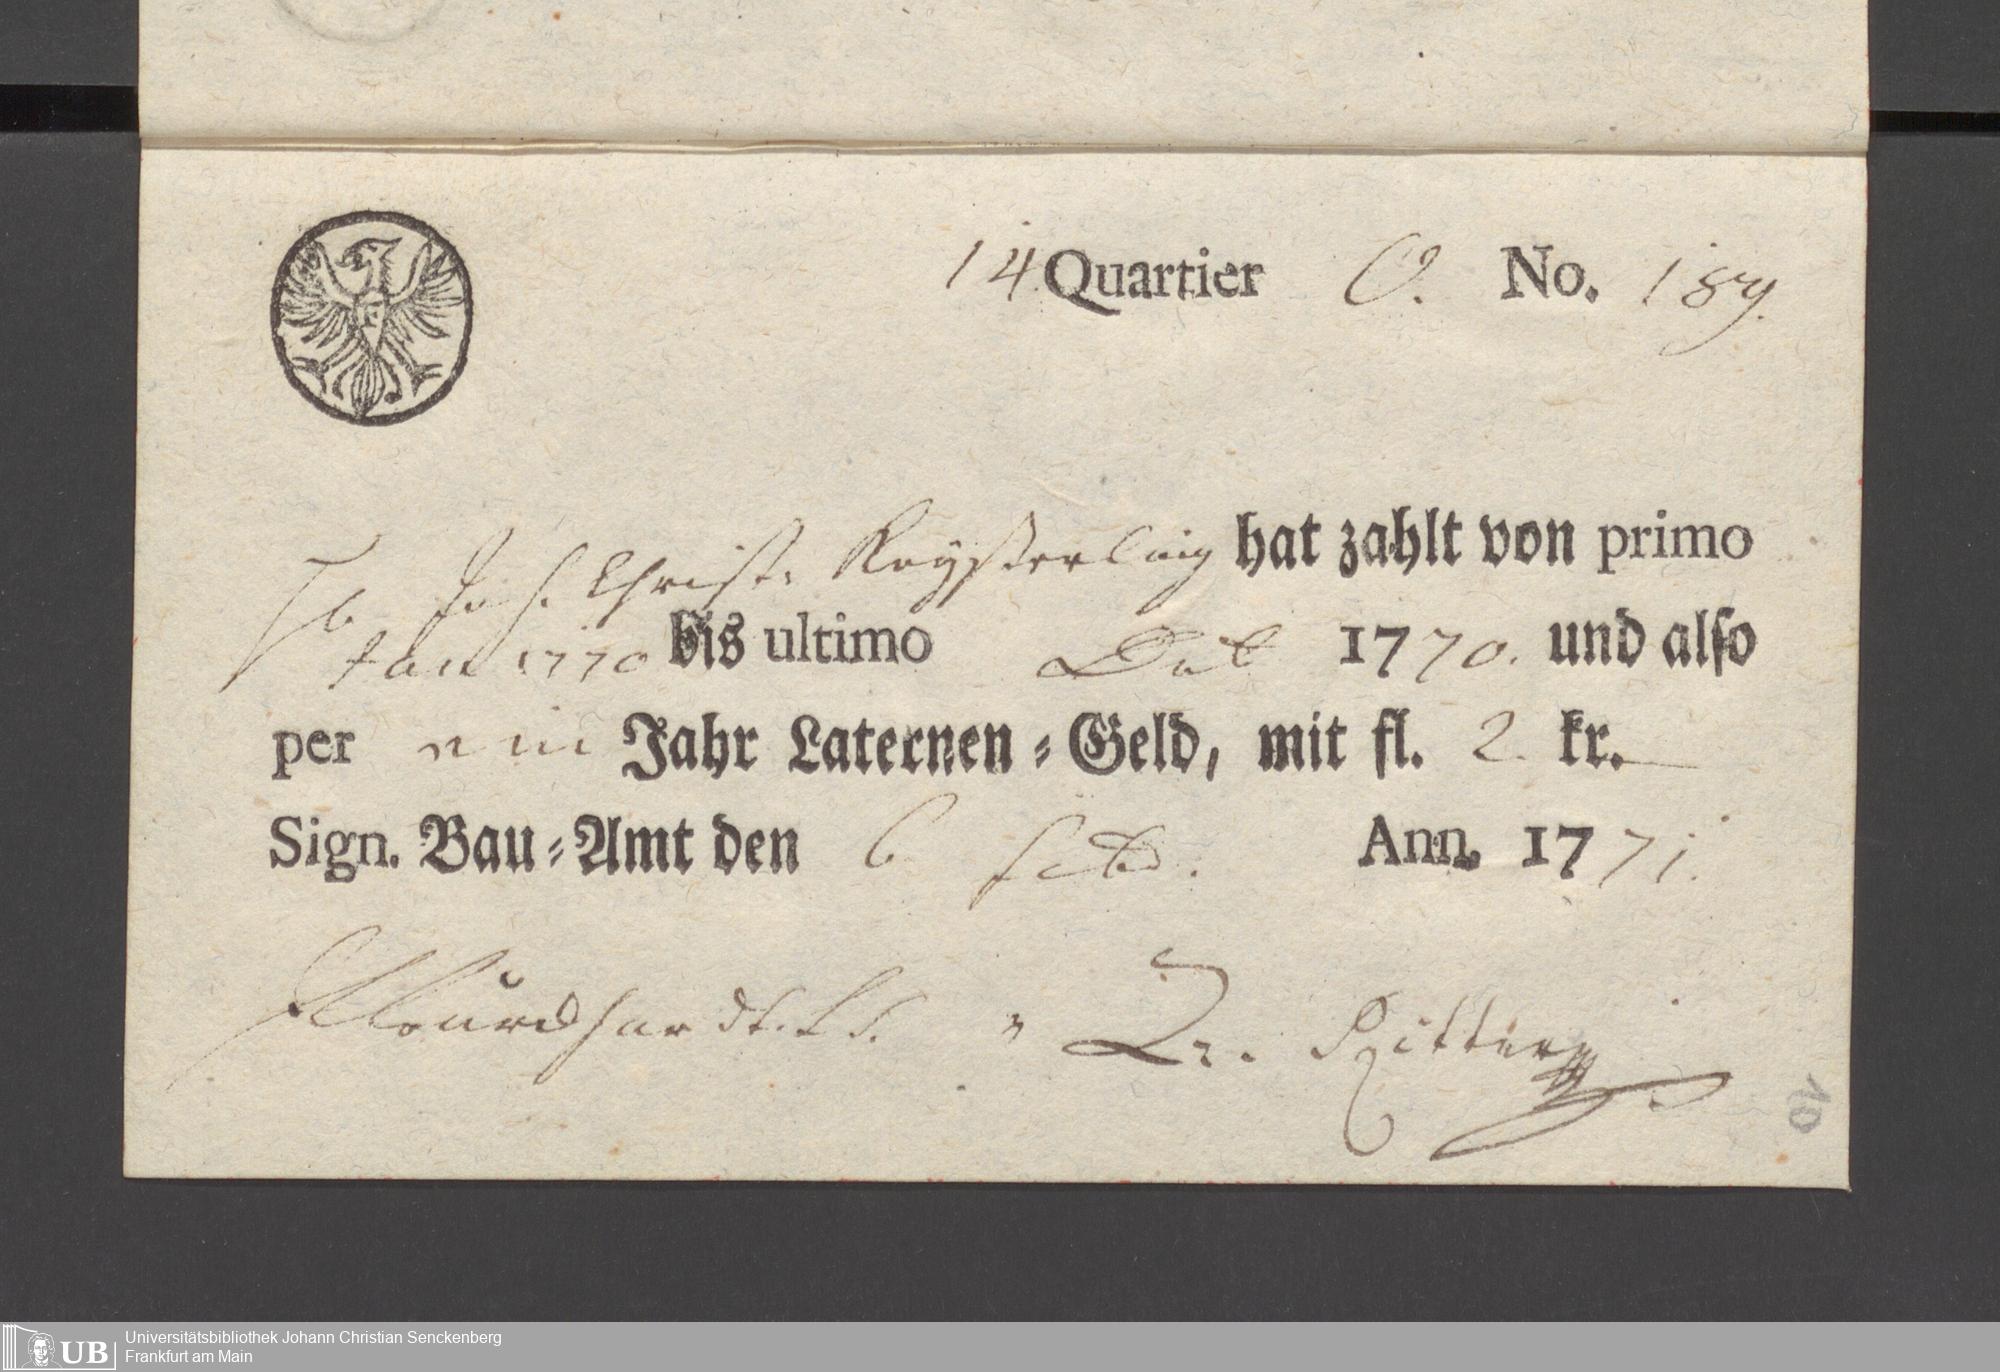 14 Quartier O. No. 189.
Joh. Christ. hat zahlt von primo
Jan 1770 bis ultimo Dec 1770. und also
per ein Jahr Laternen-Geld, mit fl. 2. kr. —
Sign. Bau-Amt den 6 Ann. 1771.
Ritter
10
UB Universitätsbibliothek Johann Christian Senckenberg
Frankfurt am Main